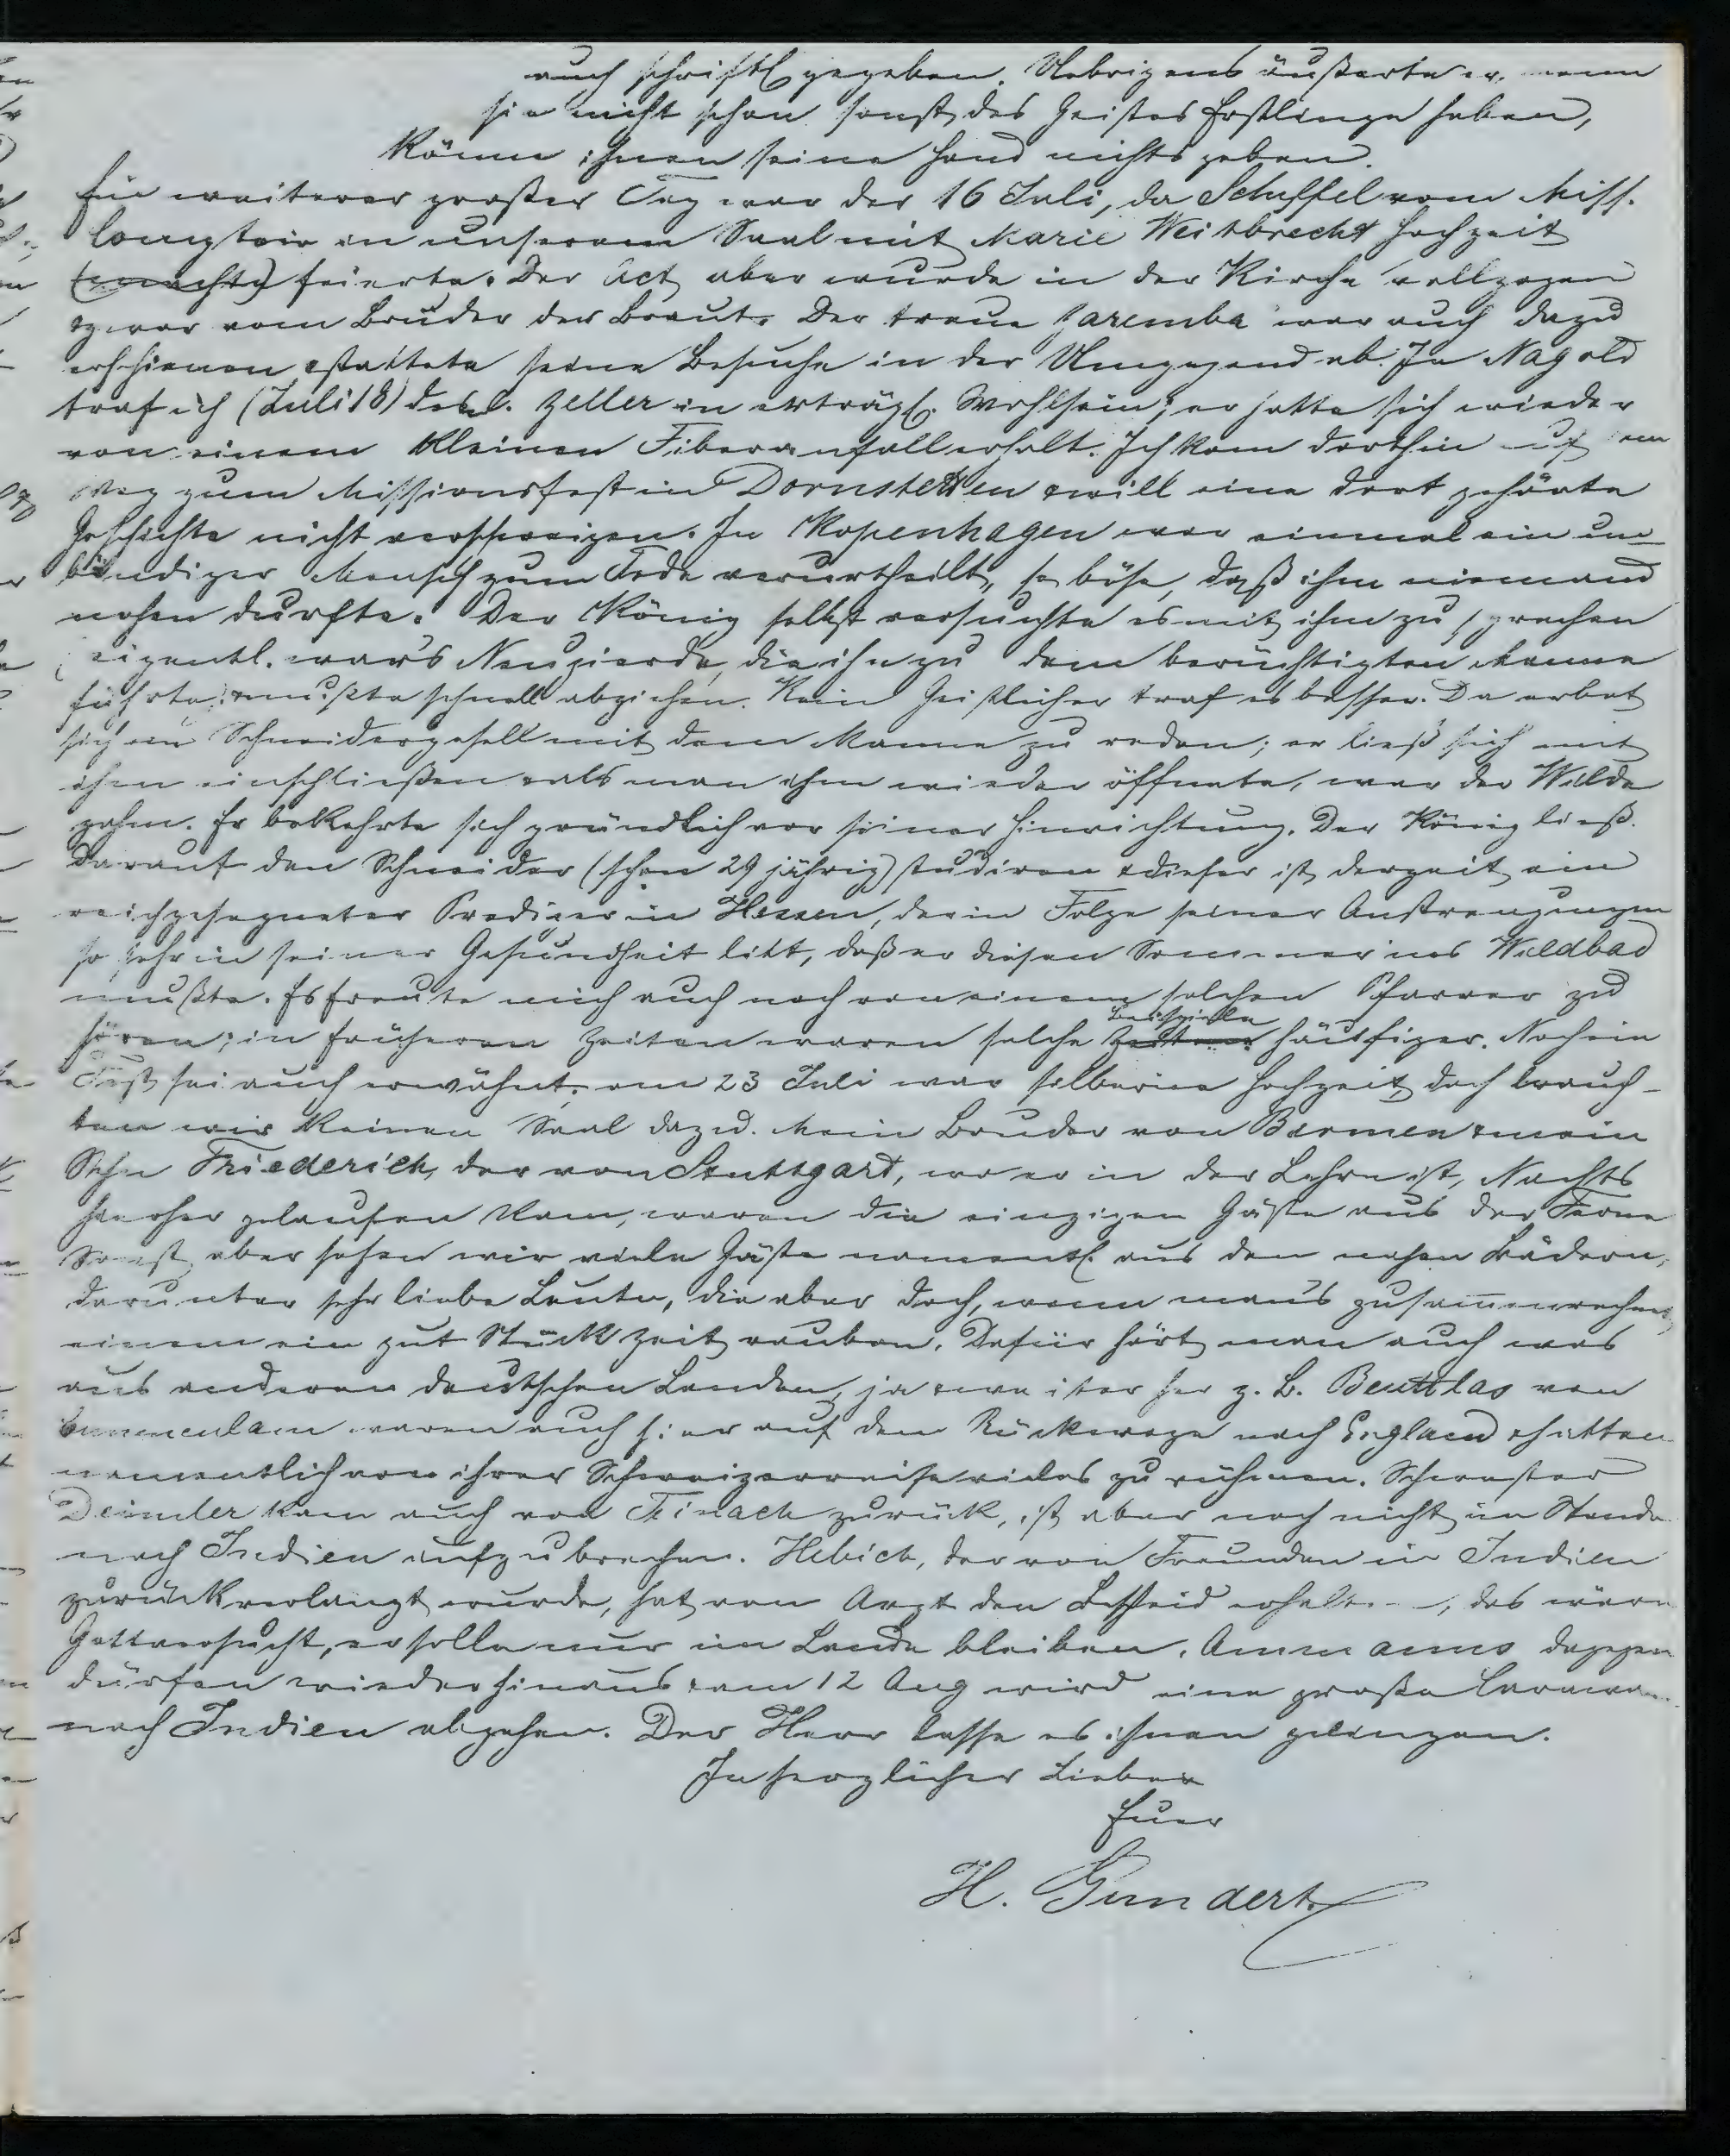 auch schriftl. gegeben. Uebrigens äußerte er, wenn
sie nicht schon sonst des Geistes Erstlinge haben,
könne ihnen seine Hand nichts geben.
Ein weiterer großer Tag war der 16 Juli, da Schuffel vom Miss.
Comptoir in unserem Saal mit Marie Weitbrecht Hochzeit
(machte) feierte. Der Act aber wurde in der Kirche vollzogen
& zwar vom Bruder der Braut. Der treue Zaremba war auch dazu
erschienen & stattete seine Besuche in der Umgegend ab. In Nagold
traf ich (Juli 18) des l. Zeller in erträgl. Wohlsein; er hatte sich wieder
von einem kleinen Fieberanfall erholt. Ich kam dorthin auf dem
Weg zum Missionsfest in Dornstetten & will eine dort gehörte
Geschichte nicht verschweigen. In Kopenhagen war einmal ein un-
bändiger Mensch zum Tode verurtheilt, so böse, daß ihm niemand
nahen durfte. Der König selbst versuchte es mit ihm zu sprechen
(eigentl. war's Neugierde, die ihn zu dem berüchtigten Manne
führte) & mußte schnell abziehen. Kein Geistlicher traf es besser. Da erbot
sich ein Schneidergesell mit dem Manne zu reden; er ließ sich mit
ihm einschließen & als man ihm wieder öffnete, war der Wilde
zahm. Er bekehrte sich gründlich vor seiner Hinrichtung. Der König ließ
darauf den Schneider (schon 29 jährig) studiren & dieser ist derzeit ein
reichgesegneter Prediger in Hessen, der in Folge seiner Anstrengungen
so sehr in seiner Gesundheit litt, daß er diesen Sommer ins Wildbad
mußte. Es freute mich auch noch von einem solchen Pfarrer zu
hören; in früheren Zeiten waren solche Beispiele häufiger. Noch ein
Fest sei auch erwähnt: am 23 Juli war silberne Hochzeit, doch brauch-
ten wir keinen Saal dazu. Mein Bruder von Barmen & mein
Sohn Friederich, der von Stuttgart, wo er in der Lehre ist, Nachts
hieher gelaufen kam, waren die einzigen Gäste aus der Ferne
Sonst aber sehen wir viele Gäste namentl. aus den nahen Bädern,
darunter sehr liebe Leute, die aber doch, wenn man's zusammenrechnet,
einem ein gut Stück Zeit rauben. Dafür hört man auch was
aus anderen deutschen Landen, ja & weiter her z. B. Beuttlas von
waren auch hier auf dem Rückwege nach England & hatten
namentlich von ihrer Schweizerreise vieles zu rühmen. Schwester
Deimler kam auch von Teinach zurück, ist aber noch nicht im Stande
nach Indien aufzubrechen. Hebich, der von Freunden in Indien
zurückverlangt wurde, hat vom Arzt den Bescheid erhalten, das wäre
Gott versucht, er solle nur im Lande bleiben. Ammanns dagegen
dürfen wieder hinaus & am 12 Aug wird eine große Caravane
nach Indien abgehen. Der Herr lasse es ihnen gelingen.
In herzlicher Liebe
Euer
H. Gundert.